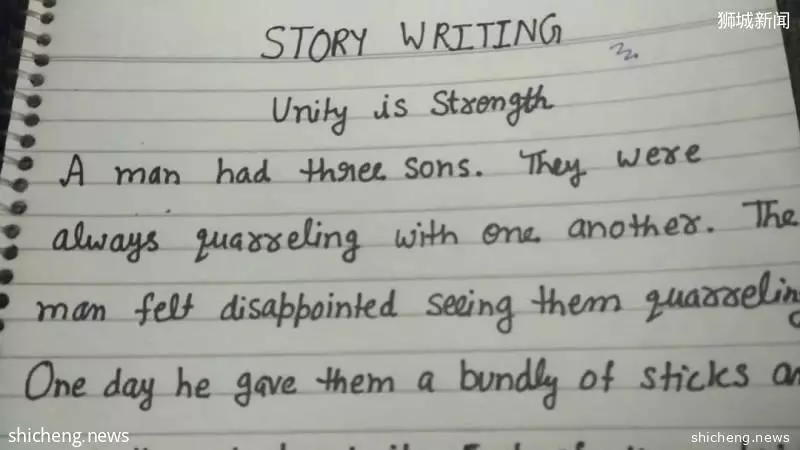 狮城新闻
STORY WRITING
Unity is Strength
A man had three sons. They were
always quarreling with one another. The
man felt disappointed seeing them quarreling
One day he gave them a bundly of sticks an
shicheng.news
shicheng.news